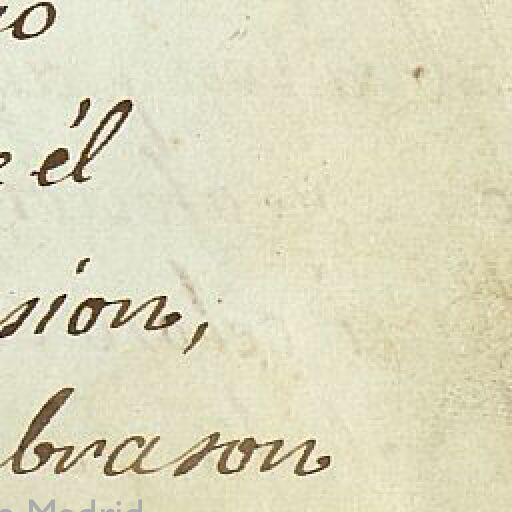 él
sion,
brason
Madrid